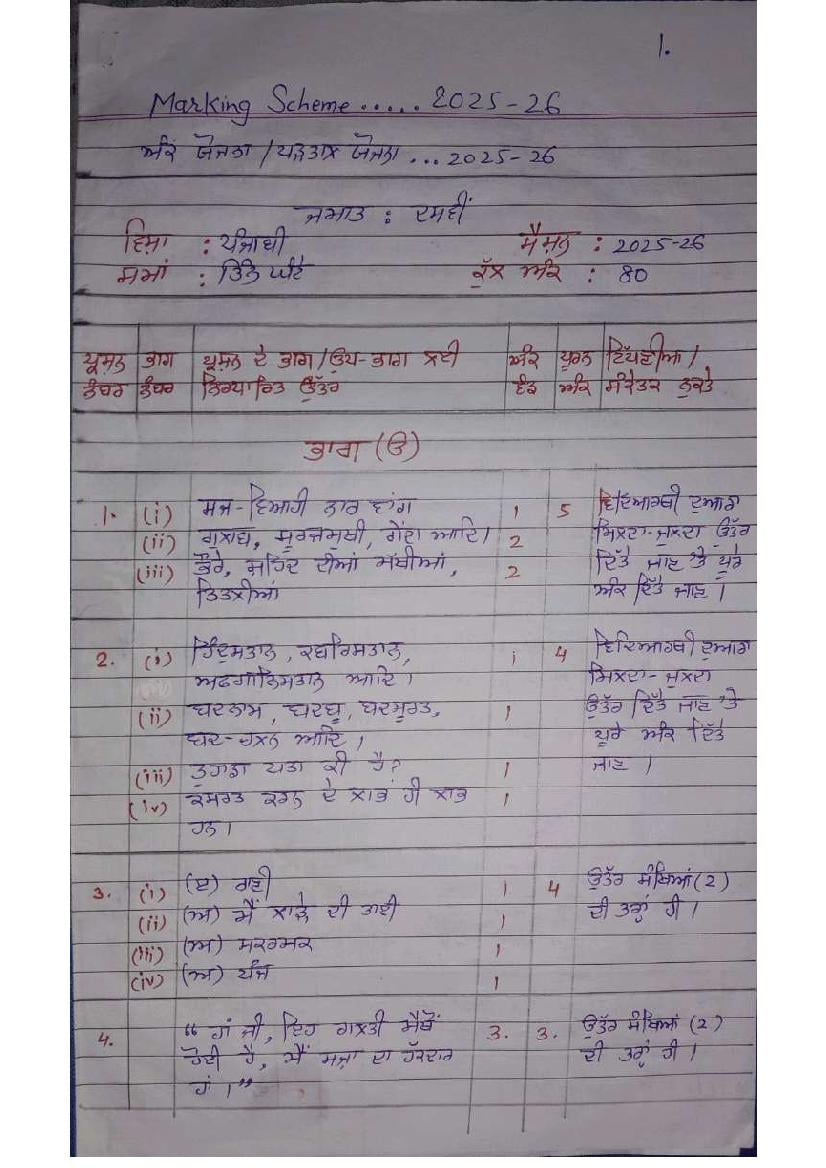 1.
Marking Scheme ..... 2025-26
ਅੰਕ ਯੋਜਨਾ / ਪੜਤਾਲ ਯੋਜਨਾ ... 2025-26
ਜਮਾਤ : ਦਸਵੀਂ
ਵਿਸ਼ਾ : ਪੰਜਾਬੀ ਸੈਸ਼ਨ : 2025-26
ਸਮਾਂ : ਤਿੰਨ ਘੰਟੇ ਕੁੱਲ ਅੰਕ : 80
ਪ੍ਰਸ਼ਨ ਭਾਗ ਪ੍ਰਸ਼ਨ ਦੇ ਭਾਗ / ਉਪ-ਭਾਗ ਲਈ ਅੰਕ ਪੂਰਨ ਟਿੱਪਣੀਆਂ /
ਨੰਬਰ ਨੰਬਰ ਨਿਰਧਾਰਿਤ ਉੱਤਰ ਵੰਡ ਅੰਕ ਸੰਕੇਤਕ ਨੁਕਤੇ
ਭਾਗ (ੳ)
1. (i) ਸਜ-ਵਿਆਹੀ ਨਾਰ ਵਾਂਗ 1 5 ਵਿਦਿਆਰਥੀ ਦੁਆਰਾ
(ii) ਗੁਲਾਬ, ਸੂਰਜਮੁਖੀ, ਗੇਂਦਾ ਆਦਿ। 2 ਮਿਲਦਾ-ਜੁਲਦਾ ਉੱਤਰ
(iii) ਭੌਰੇ, ਸ਼ਹਿਦ ਦੀਆਂ ਮੱਖੀਆਂ, 2 ਦਿੱਤੇ ਜਾਣ 'ਤੇ ਪੂਰੇ
ਤਿਤਲੀਆਂ ਅੰਕ ਦਿੱਤੇ ਜਾਣ।
2. (i) ਹਿੰਦੁਸਤਾਨ, ਕਬਰਿਸਤਾਨ, 1 4 ਵਿਦਿਆਰਥੀ ਦੁਆਰਾ
ਅਫਗਾਨਿਸਤਾਨ ਆਦਿ। ਮਿਲਦਾ-ਜੁਲਦਾ
(ii) ਬਦਨਾਮ, ਬਦਬੂ, ਬਦਸੂਰਤ, 1 ਉੱਤਰ ਦਿੱਤੇ ਜਾਣ 'ਤੇ
ਬਦ-ਚਲਨ ਆਦਿ। ਪੂਰੇ ਅੰਕ ਦਿੱਤੇ
(iii) ਤੁਹਾਡਾ ਪਤਾ ਕੀ ਹੈ? 1 ਜਾਣ।
(iv) ਕਸਰਤ ਕਰਨ ਦੇ ਲਾਭ ਹੀ ਲਾਭ 1
ਹਨ।
3. (i) (ੲ) ਰਾਣੀ 1 4 ਉੱਤਰ ਸੰਖਿਆ (2)
(ii) (ਅ) ਮੈਂ ਲਾੜੇ ਦੀ ਤਾਈ 1 ਦੀ ਤਰ੍ਹਾਂ ਹੀ।
(iii) (ਅ) ਸਕਰਮਕ 1
(iv) (ਅ) ਪੰਜ 1
4. “ਹਾਂ ਜੀ, ਇਹ ਗਲਤੀ ਮੈਥੋਂ 3. 3. ਉੱਤਰ ਸੰਖਿਆ (2)
ਹੋਈ ਹੈ, ਮੈਂ ਸਜ਼ਾ ਦਾ ਹੱਕਦਾਰ ਦੀ ਤਰ੍ਹਾਂ ਹੀ।
ਹਾਂ।”